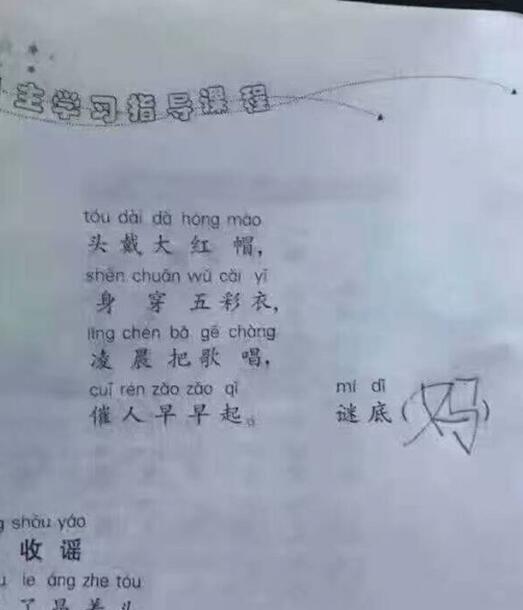 主学习指导课程
tóu dài dà hóng mào
头戴大红帽，
shēn chuān wǔ cǎi yī
身穿五彩衣，
líng chén bǎ gē chàng
凌晨把歌唱，
cuī rén zǎo zǎo qǐ
催人早早起。
mí dǐ
谜底（妈）
shōu yáo
收谣
áng zhe tóu